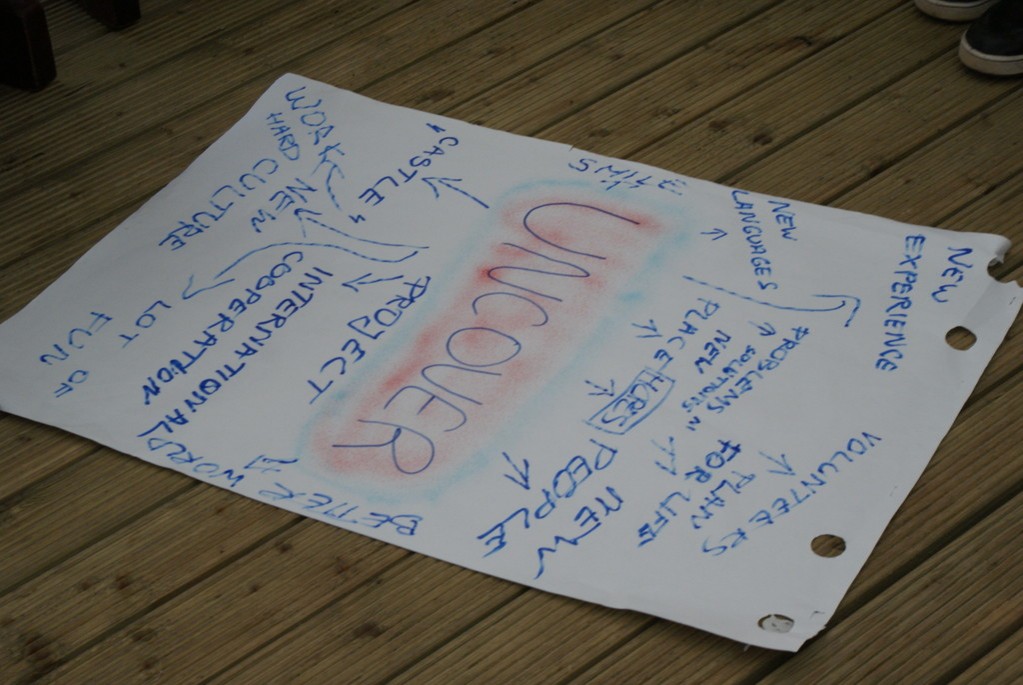 UNCOVER
SMILE
CASTLE
WORK
HARD
NEW
CULTURE
PROJECT
INTERNATIONAL
COOPERATION
LOT
OF
FUN
BETTER WORLD
NEW
PEOPLE
NEW
PLACE
PLAN
FOR LIFE
PROBLEMS
SOLUTIONS
VOLUNTEERS
NEW
LANGUAGES
NEW
EXPERIENCE